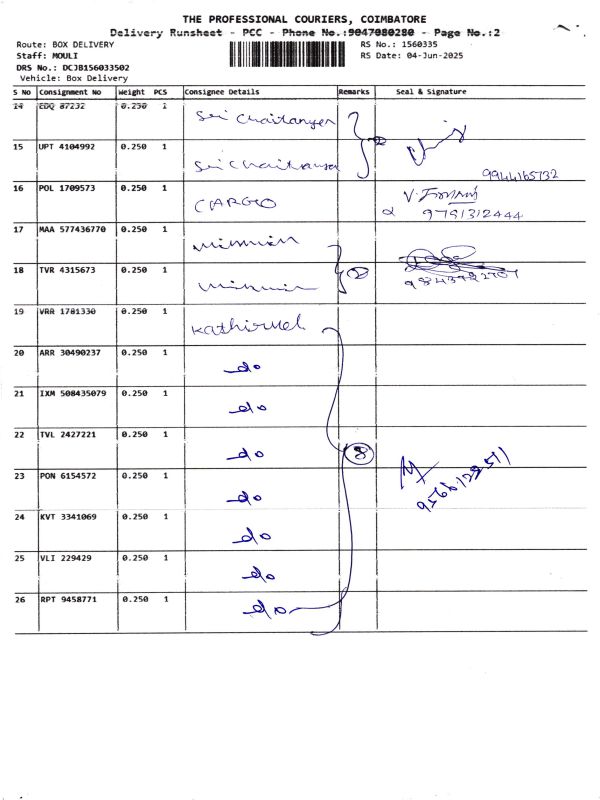 THE PROFESSIONAL COURIERS, COIMBATORE
Delivery Runsheet - PCC - Phone No.:9047080280 - Page No.:2
Route: BOX DELIVERY RS No.: 1560335
Staff: MOULI RS Date: 04-Jun-2025
DRS No.: DCJB156033502
Vehicle: Box Delivery
S No Consignment No Weight PCS Consignee Details Remarks Seal & Signature
14 EDQ 87232 0.250 1 Sri Chaitanya
2
15 UPT 4104992 0.250 1 Sri Chaitanya
9944165732
16 POL 1709573 0.250 1 CARGO
9791312444
17 MAA 577436770 0.250 1
18 TVR 4315673 0.250 1 2
19 VRR 1701330 0.250 1 Kathirvel
20 ARR 30490237 0.250 1 do
21 IXM 508435079 0.250 1 do
22 TVL 2427221 0.250 1 do 8
23 PON 6154572 0.250 1 do
24 KVT 3341069 0.250 1 do
25 VLI 229429 0.250 1 do
26 RPT 9458771 0.250 1 do